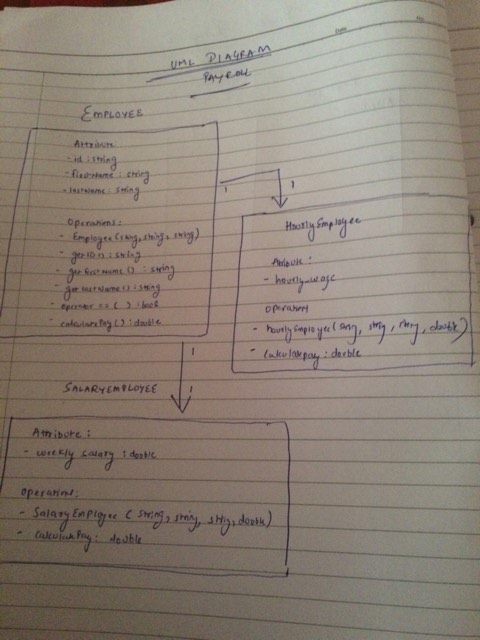 UML DIAGRAM
PAYROLL
EMPLOYEE
Attribute
- id : string
- firstName : string
- lastName : string
Operations :
- Employee (string, string, string)
- getID() : string
- get firstName() : string
- get lastName() : string
- operator == ( ) : bool
- calculatePay() : double
1
1
HourlyEmployee
Attribute :
- hourly_wage
Operation
- hourlyEmployee (string, string, string, double)
- Calculatepay : double
1
SALARYEMPLOYEE
1
Attribute :
- weekly salary : double
operation :
- SalaryEmployee ( string, string, string, double)
- CalculatePay : double